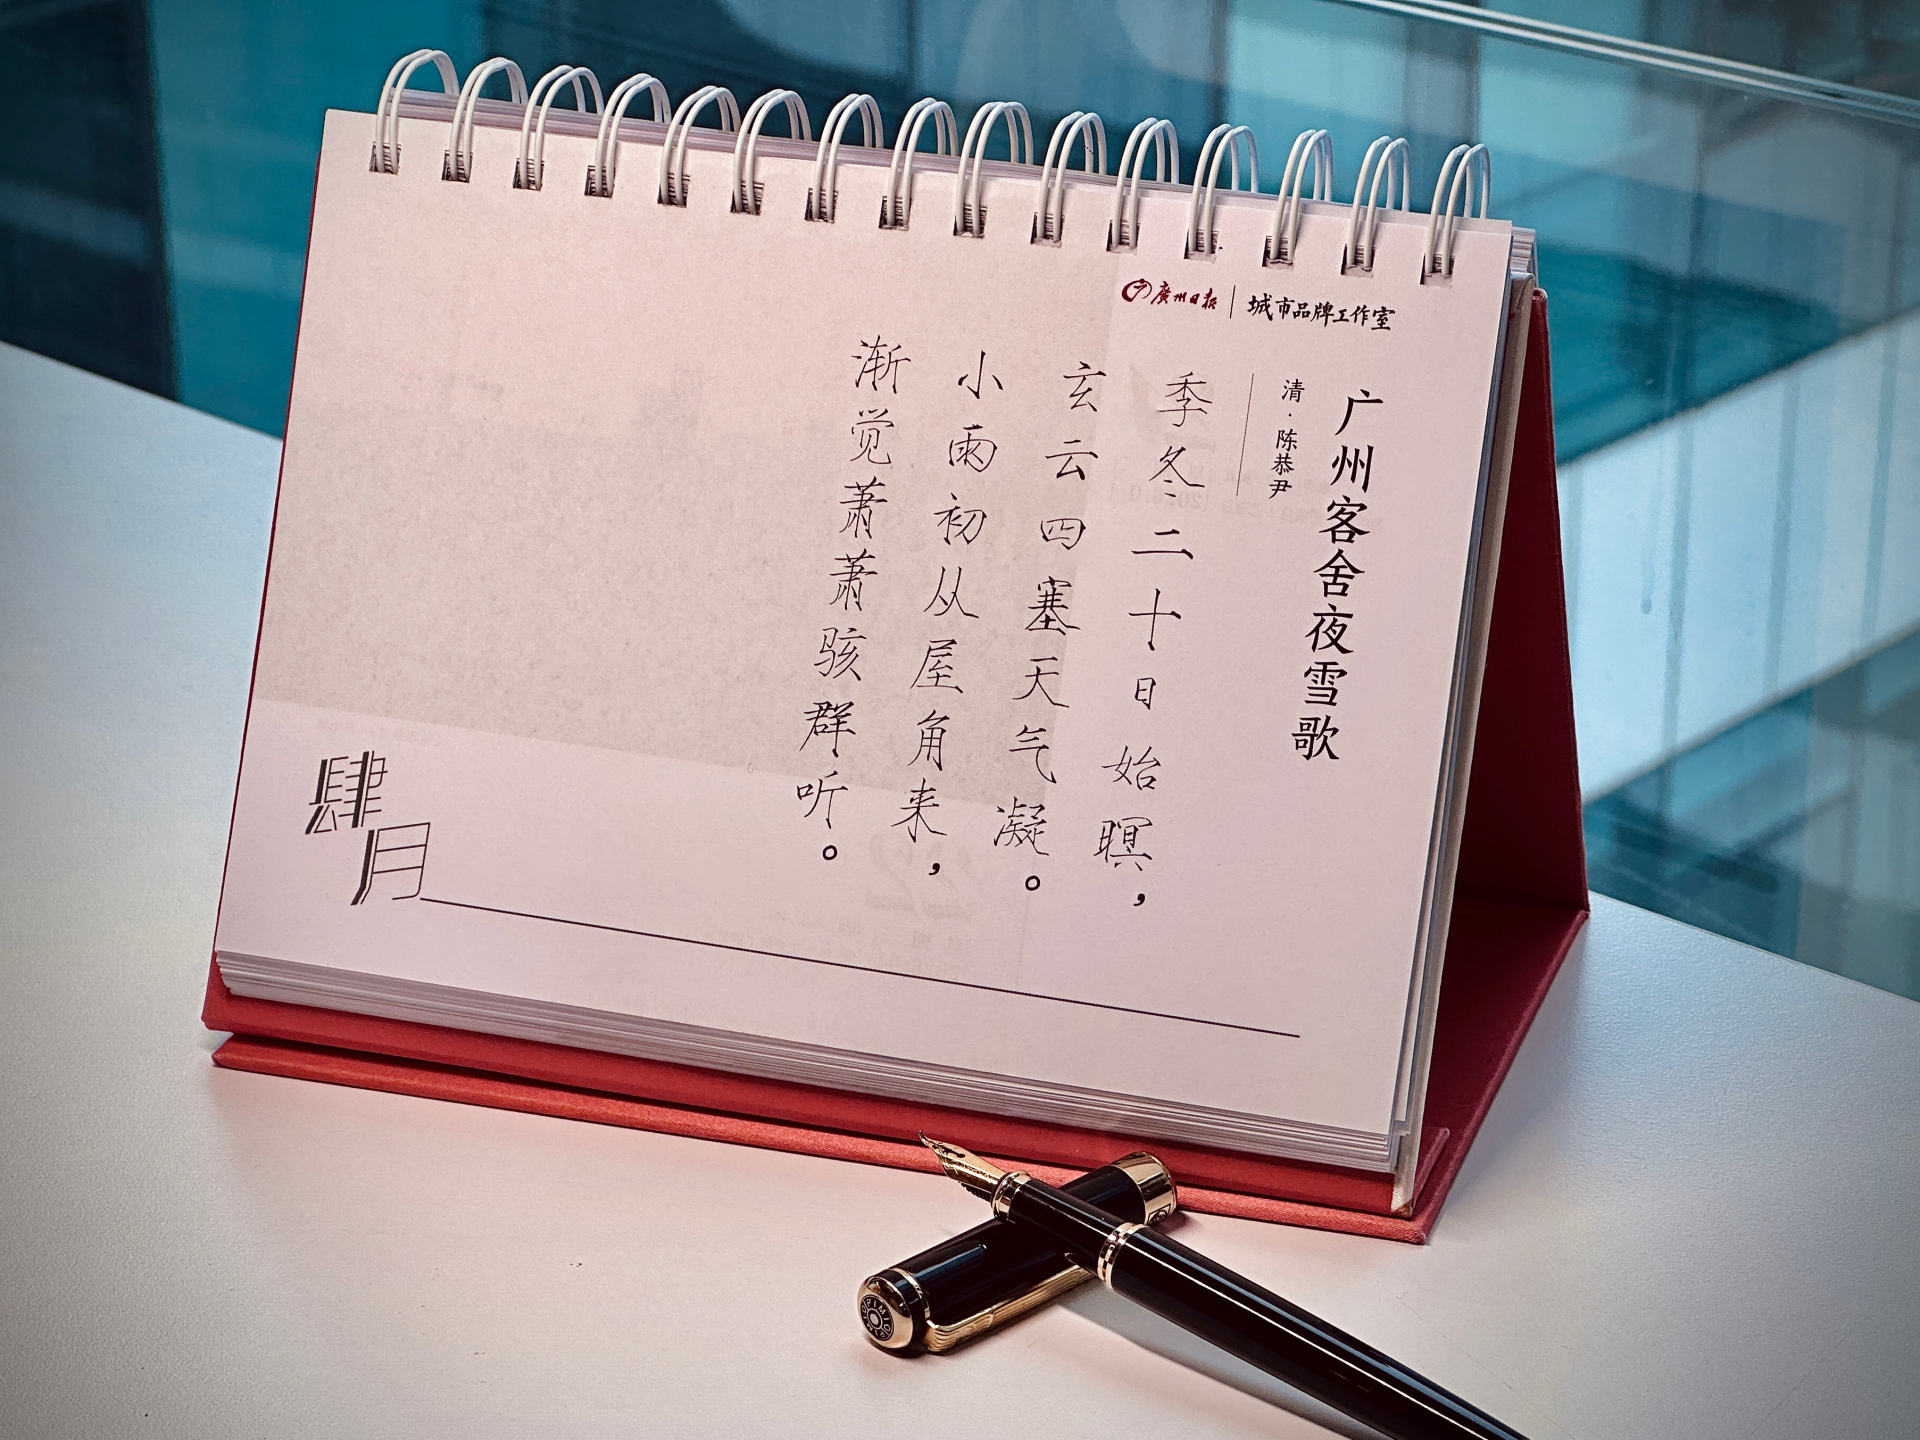 廣州日报 | 城市品牌工作室
广州客舍夜雪歌
清·陈恭尹
季冬二十日始暝，
玄云四塞天气凝。
小雨初从屋角来，
渐觉萧萧骇群听。
肆月